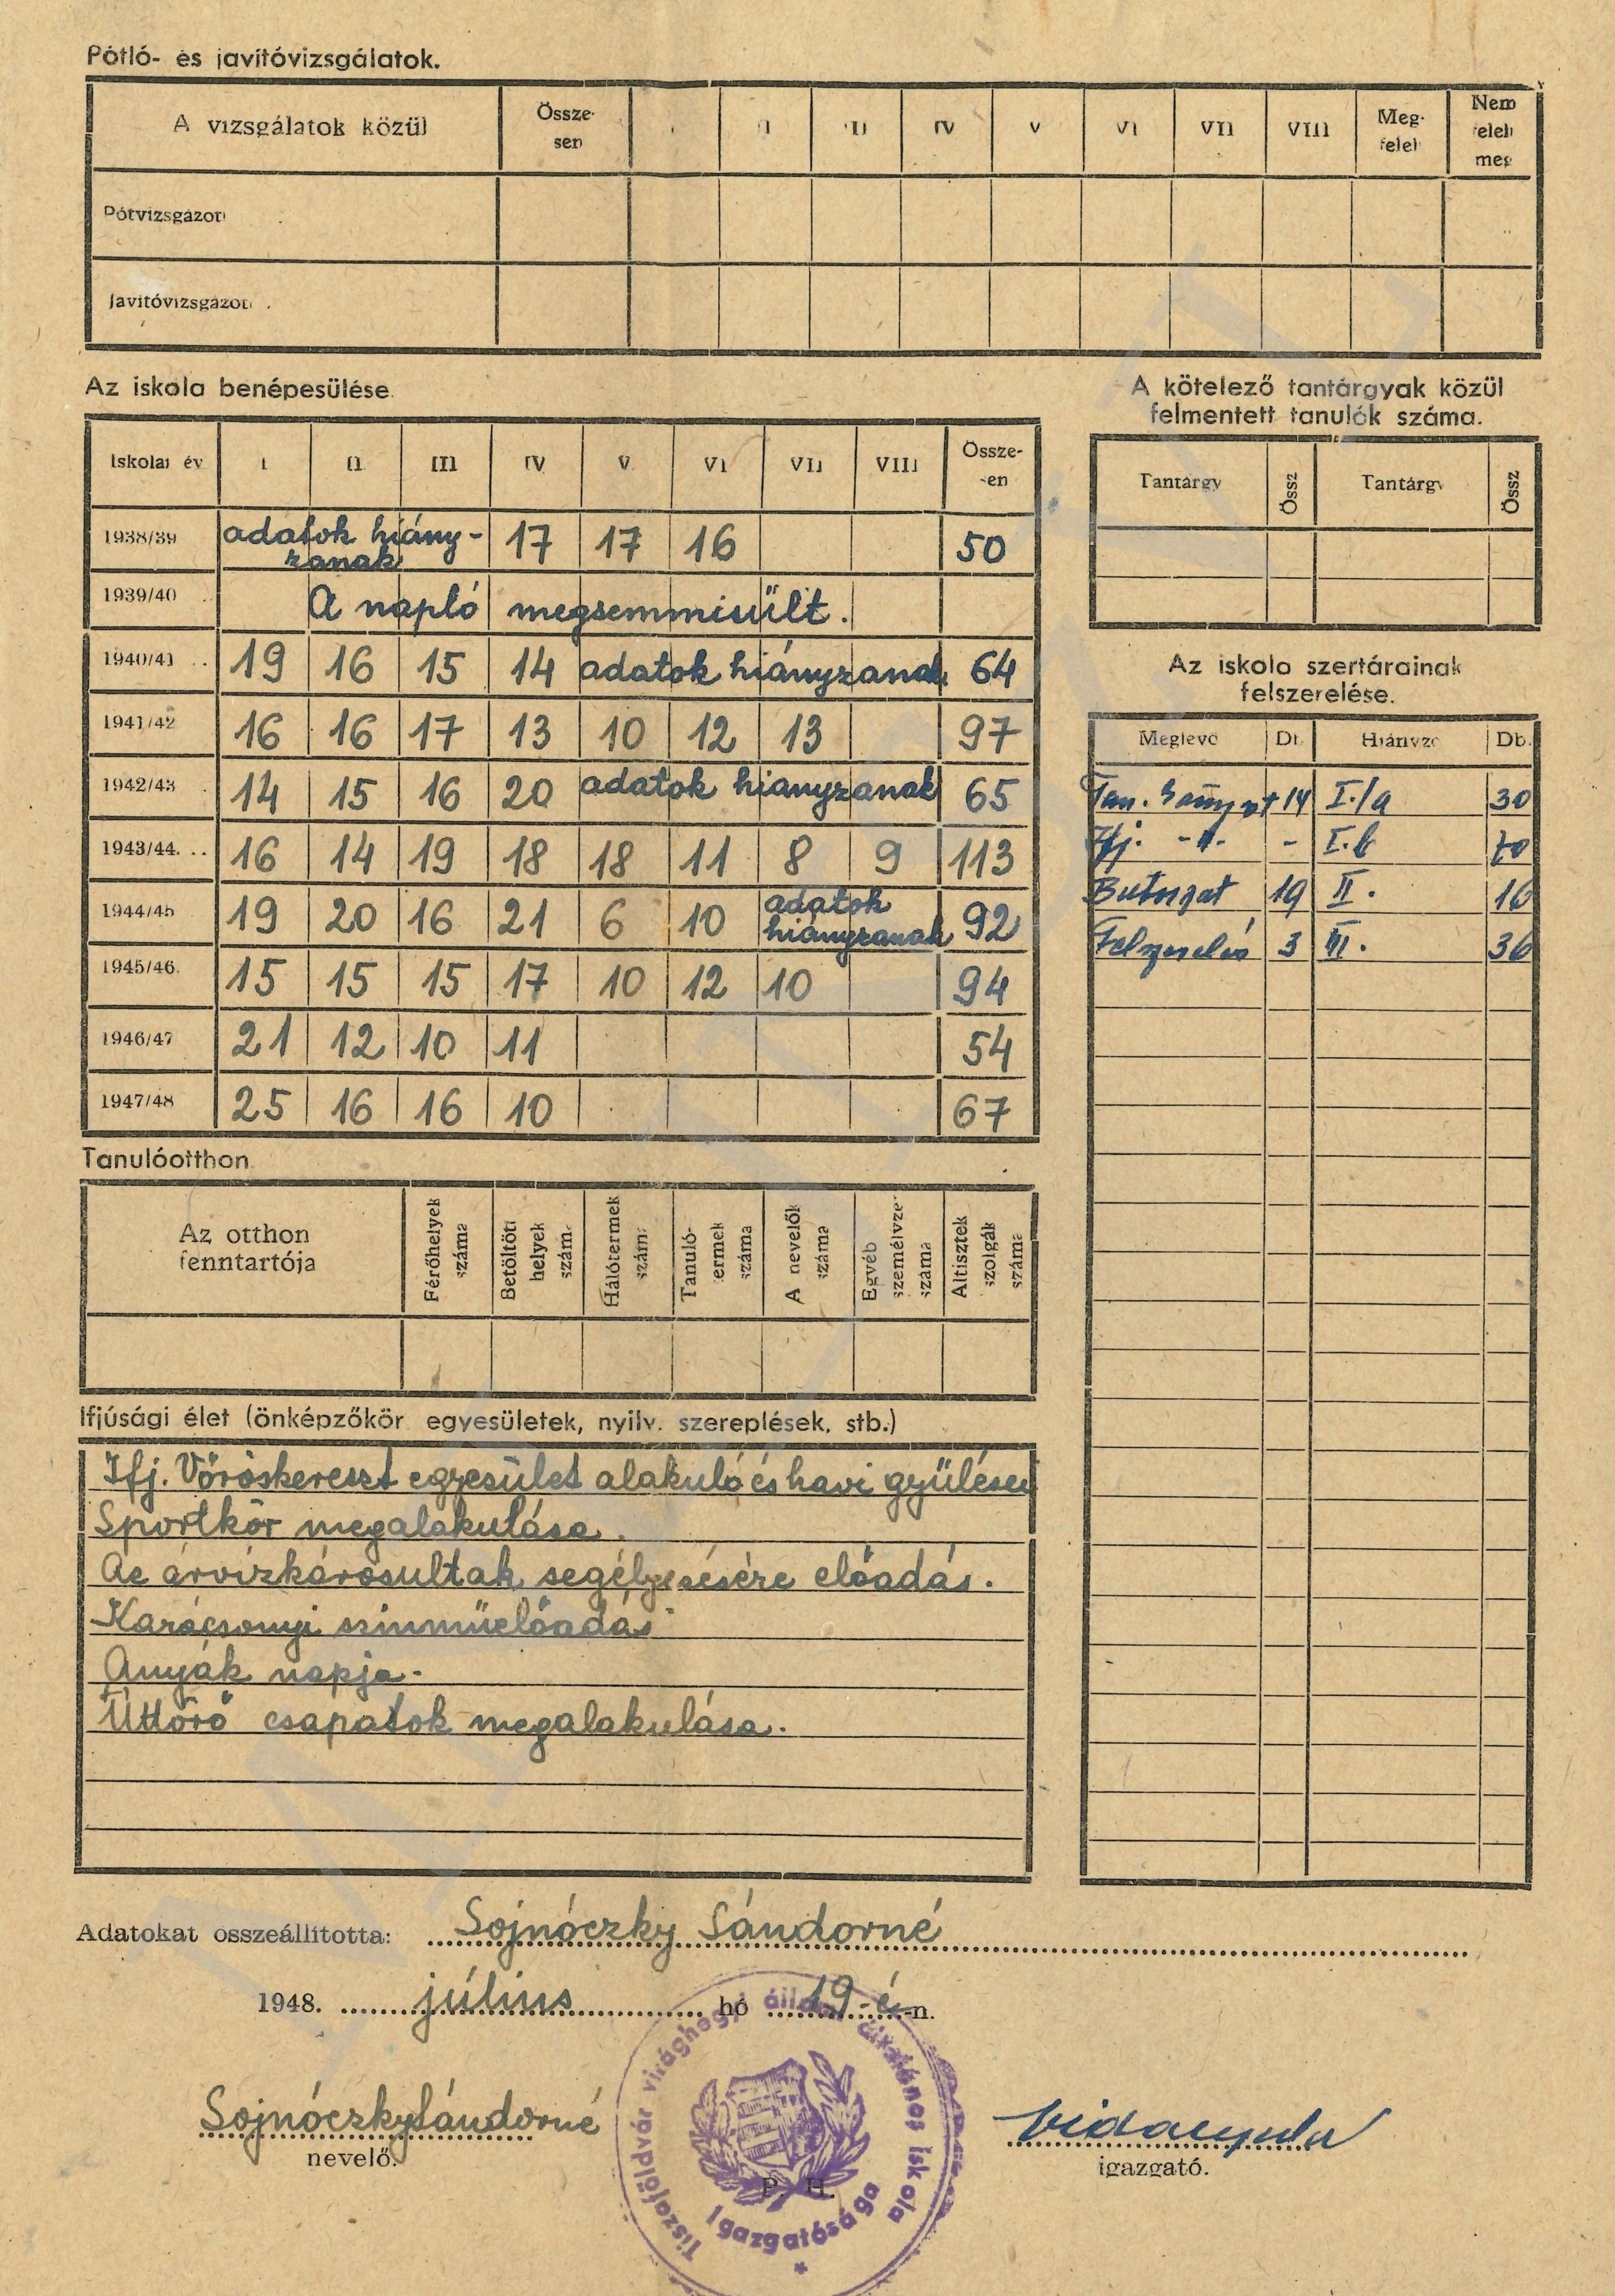 Pótló- és javítóvizsgálatok.
A vizsgálatok közül Össze- sen IV V VI VII VIII Meg- felel Nem felelt meg
Pótvizsgázott
Javítóvizsgázott
Az iskola benépesülése
Iskolai év I II III IV V VI VII VIII Össze- -en
1938/39 adatok hiány- zanak 17 17 16 50
1939/40 A napló megsemmisült.
1940/41 19 16 15 14 adatok hiányzanak 64
1941/42 16 16 17 13 10 12 13 97
1942/43 14 15 16 20 adatok hianyzanak 65
1943/44. 16 14 19 18 18 11 8 9 113
1944/45 19 20 16 21 6 10 adatok hiányzanak 92
1945/46. 15 15 15 17 10 12 10 94
1946/47 21 12 10 11 54
1947/48 25 16 16 10 67
A kötelező tantárgyak közül
felmentett tanulók száma.
Tantárgy Össz Tantárgy Össz
Az iskola szertárainak
felszerelése.
Meglevő Db. Hiányzó Db.
14 I./a 30
Ifj. -"- - I.b 70
Butorzat 19 II. 16
Felszerelés 3 III. 36
Tanulóotthon
Az otthon fenntartója Férőhelyek száma Betöltött helyek száma Hálótermek száma Tanuló- termek száma A nevelők száma Egyéb személyzet száma Altisztek szolgák száma
Ifjúsági élet (önképzőkör egyesületek, nyilv. szereplések, stb.)
Ifj. Vöröskereszt egyesület alakuló és havi gyűlései
Sportkör megalakulása.
Az árvízkárosultak segélyezésére előadás.
Karácsonyi szinműelőadás
Anyák napja.
Úttörő csapatok megalakulása.
Adatokat összeállította: Sojnóczky Sándorné
1948. július hó 19-é-n.
Sojnóczky Sándorné
nevelő.
P. H.
igazgató.
Tiszaföldvár virághegyi állami általános iskola
Igazgatósága